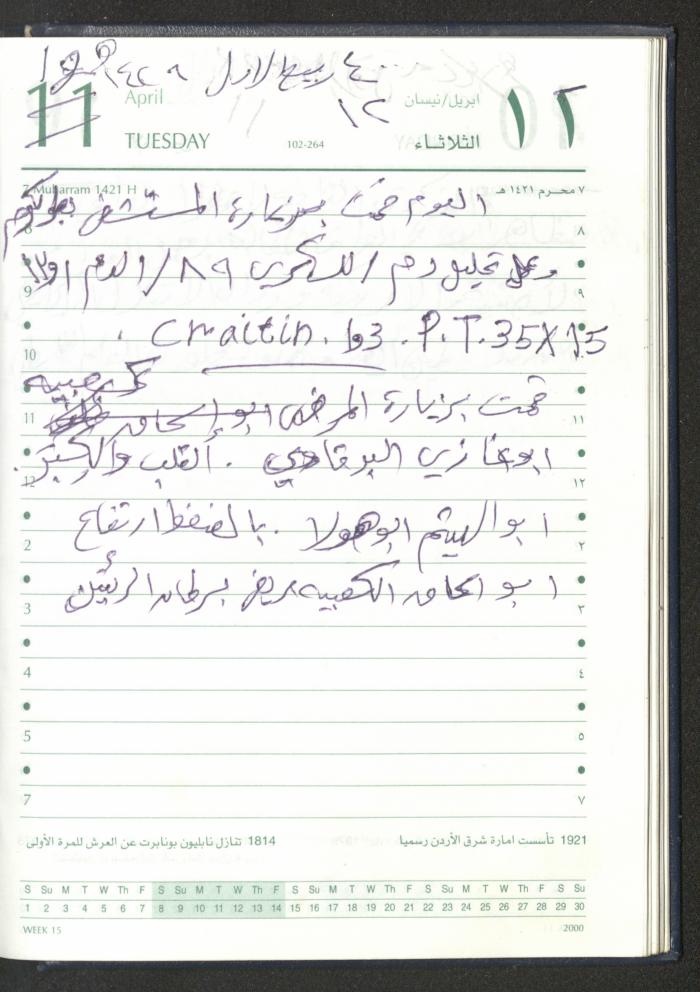 ٤ ربيع الاول ١٤٢٩ هـ
11 April ١٢ ابريل/نيسان ١١
TUESDAY 102-264 الثلاثاء
7 Muharram 1421 H ٧ محرم ١٤٢١ هـ
اليوم قمت بزيارة المستشفى بطولكرم
8 ٨
وعمل تحليل دم / للسكري ٨٩ / الدم
9 ٩
Craitin . 1و3 . P.T. 35 X 15
10
قمت بزيارة المرضى ابو إسحاق
11 ١١
ابو غازي البرقاوي . القلب والكبر .
12 ١٢
ابو الهيثم ابو هولا . بالضغط ارتفاع
2 ٢
ابو اسحاق الكعبيه مريض بسرطان الرئتين
3 ٣
4 ٤
5 ٥
7 ٧
1921 تأسست امارة شرق الأردن رسميا 1814 تنازل نابليون بونابرت عن العرش للمرة الأولى
S Su M T W Th F S Su M T W Th F S Su M T W Th F S Su M T W Th F S Su
1 2 3 4 5 6 7 8 9 10 11 12 13 14 15 16 17 18 19 20 21 22 23 24 25 26 27 28 29 30
WEEK 15 2000